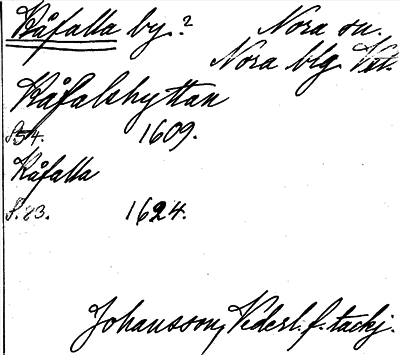 Kåfalla by? Nora sn.
Nora blg. Vstm.
Kåfalshyttan
s. 54. 1609.
Kåfalla
s. 23. 1624.
Johansson, Vedersl. f. tackj.